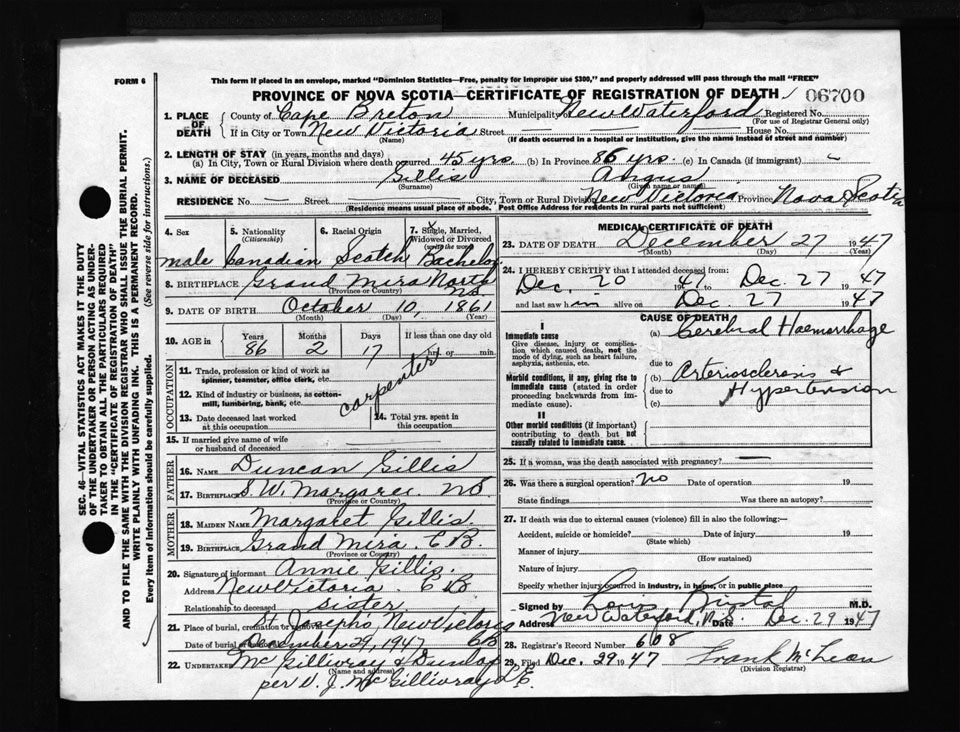 FORM 6
This form if placed in an envelope, marked "Dominion Statistics—Free, penalty for improper use $300," and properly addressed will pass through the mail "FREE"
PROVINCE OF NOVA SCOTIA—CERTIFICATE OF REGISTRATION OF DEATH
06700
1. PLACE OF DEATH
County of Cape Breton Municipality of New Waterford Registered No.
(For use of Registrar General only)
If in City or Town New Victoria Street — — House No. —
(Name) (If death occurred in a hospital or institution, give the name instead of street and number)
2. LENGTH OF STAY (in years, months and days)
(a) In City, Town or Rural Division where death occurred 45 yrs. (b) In Province 86 yrs. (c) In Canada (if immigrant) —
3. NAME OF DECEASED Gillis Angus
(Surname) (Given name or names)
RESIDENCE No. — Street City, Town or Rural Division New Victoria Province Nova Scotia
(Residence means usual place of abode. Post Office Address for residents in rural parts not sufficient)
4. Sex
5. Nationality (Citizenship)
6. Racial Origin
7. Single, Married, Widowed or Divorced (write the word)
male Canadian Scotch Bachelor
8. BIRTHPLACE Grand Mira North NS
(Province or Country)
9. DATE OF BIRTH October 10, 1861
(Month) (Day) (Year)
10. AGE in Years Months Days If less than one day old
86 2 17 hrs. or min.
OCCUPATION
11. Trade, profession or kind of work as spinner, teamster, office clerk, etc.
carpenter
12. Kind of industry or business, as cotton-mill, lumbering, bank, etc.
13. Date deceased last worked at this occupation
14. Total yrs. spent in this occupation
15. If married give name of wife or husband of deceased
FATHER
16. NAME Duncan Gillis
17. BIRTHPLACE S. W. Margaree. NS
(Province or Country)
MOTHER
18. MAIDEN NAME Margaret Gillis.
19. BIRTHPLACE Grand Mira. C B.
(Province or Country)
20. Signature of informant Annie Gillis.
Address New Victoria C B.
Relationship to deceased sister
21. Place of burial, cremation or removal St Josephs, New Victoria
Date of burial December 29, 1947 CB
22. UNDERTAKER McGillivray & Dunlop
(Name and address)
per V. J. McGillivray L E.
MEDICAL CERTIFICATE OF DEATH
23. DATE OF DEATH December 27 1947
(Month) (Day) (Year)
24. I HEREBY CERTIFY that I attended deceased from:
Dec. 20 1947 to Dec 27 1947
and last saw him alive on Dec. 27 1947
CAUSE OF DEATH
I
Immediate cause
Give disease, injury or complication which caused death, not the mode of dying, such as heart failure, asphyxia, asthenia, etc.
(a) Cerebral Haemorrhage
due to
Morbid conditions, if any, giving rise to immediate cause (stated in order proceeding backwards from immediate cause).
(b) Arteriosclerosis &
due to Hypertension
(c)
II
Other morbid conditions (if important) contributing to death but not causally related to immediate cause.
25. If a woman, was the death associated with pregnancy? —
26. Was there a surgical operation? No Date of operation 19
State findings Was there an autopsy?
27. If death was due to external causes (violence) fill in also the following:—
Accident, suicide or homicide? Date of injury 19
(State which)
Manner of injury
(How sustained)
Nature of injury
Specify whether injury occurred in industry, in home, or in public place
Signed by M.D.
Address New Waterford, N.S. Date Dec. 29 1947
28. Registrar's Record Number 608
29. Filed Dec. 29 1947 Frank McLean
(Division Registrar)
SEC. 46—VITAL STATISTICS ACT MAKES IT THE DUTY
OF THE UNDERTAKER OR PERSON ACTING AS UNDER-
TAKER TO OBTAIN ALL THE PARTICULARS REQUIRED
IN THE "CERTIFICATE OF REGISTRATION OF DEATH"
AND TO FILE THE SAME WITH THE DIVISION REGISTRAR WHO SHALL ISSUE THE BURIAL PERMIT.
WRITE PLAINLY WITH UNFADING INK. THIS IS A PERMANENT RECORD.
Every item of information should be carefully supplied. (See reverse side for instructions.)